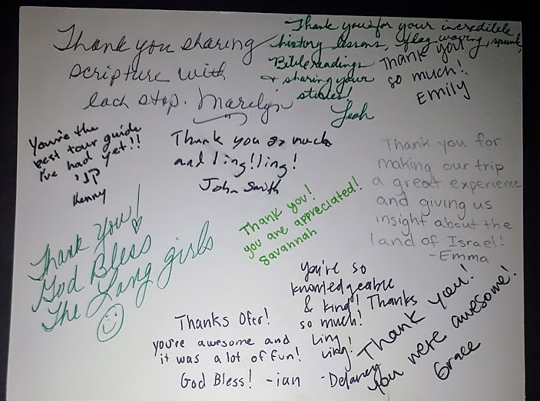 Thank you sharing
scripture with
each stop. Marelyn
Thank you for your incredible
history lessons, flag waving, spunk,
Bible readings
& sharing your
stories!
Leah
Thank you
so much!
Emily
You're the
best tour guide
I've had yet!!
Kenny
Thank you so much
and ling!ling!
John Smith
Thank you for
making our trip
a great experience
and giving us
insight about the
land of Israel!
-Emma
Thank you!
you are appreciated!
Savannah
Thank you!
God Bless
The Lang girls
You're so
knowledgeable
& kind! Thanks
so much!
Ling
Ling!
-Delaney
Thanks Ofer!
you're awesome and
it was a lot of fun!
God Bless! -ian
Thank you!
You were awesome!
Grace